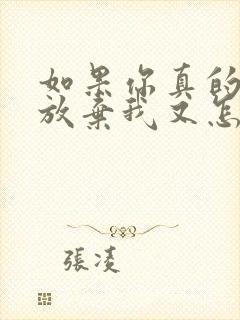 如果你真的
放棄我又怎
張凌